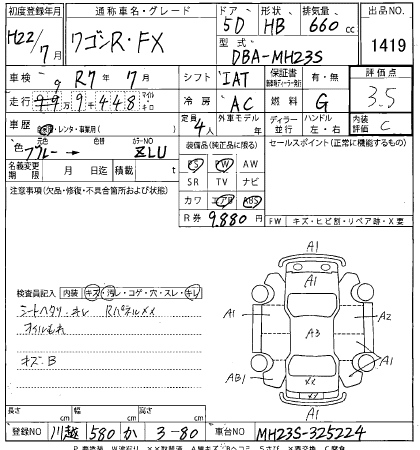 初度登録年月 通称車名・グレード ドア 形状 排気量 出品NO
H22/7月 ワゴンR・FX 5D HB 660cc 1419
型式 DBA-MH23S
車検 R7年7月 シフト IAT 保証書 有・無 評価点
走行 9 9 4 4 8 マイル キロ 冷房 AC 燃料 G 3.5
車歴 レンタ・事業用( ) 定員 4人 外車モデル 年 ディーラー 並行 ハンドル 左・右 内装評価 C
色 元色 ブルー → 色替 カラーNO ZLU 装備品(純正品に限る) セールスポイント(正常に機能するもの)
名義変更期限 月 日迄 積載 t PS PW AW
SR TV ナビ
注意事項(欠品・修復・不具合箇所および状態) カワ エアB ABS
R券 9,880円 FW キズ・ヒビ割・リペア跡・X要
A1
A1
検査員記入 内装 キズ・汚レ・コゲ・穴・スレ・キレ
シートヘタリ・キレ Rパネルメメ
オイルもれ
A1 A3 A2
キズ:B
AB1 XX A1
A1
長さ cm 幅 cm 高さ cm
登録NO 川越 580 か 3-80 車台NO MH23S-325224